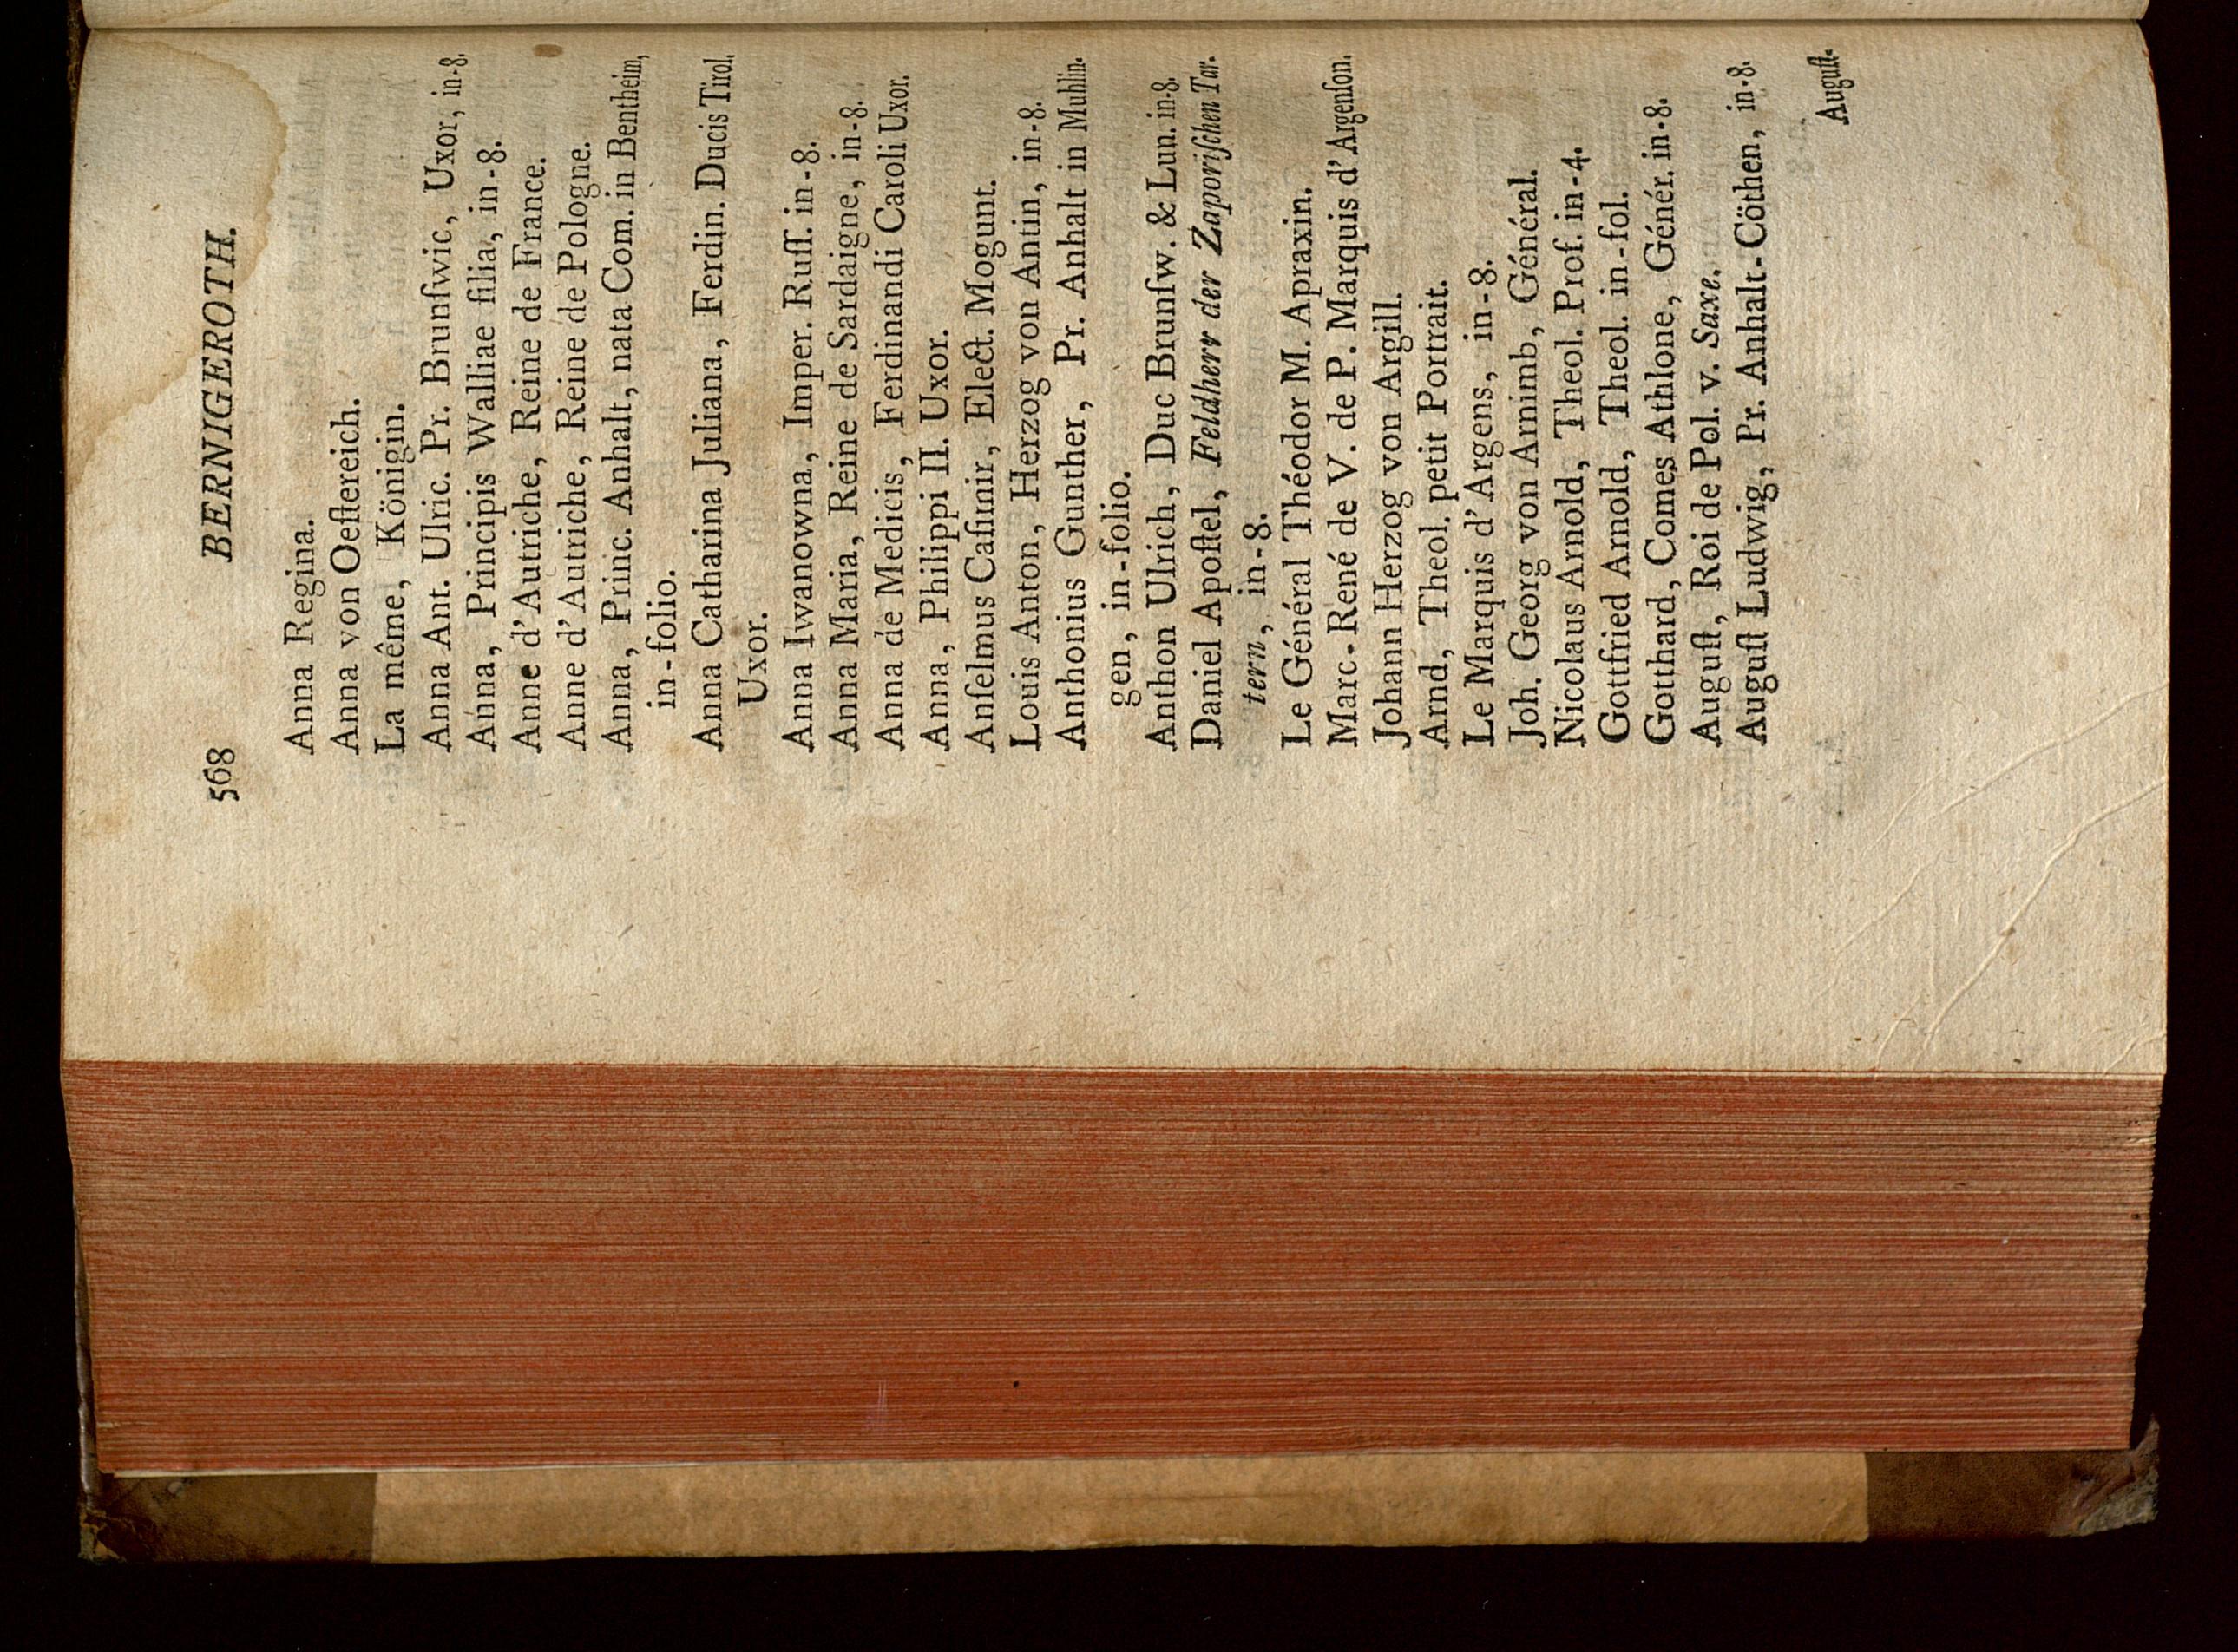 568 BERNIGEROTH.
Anna Regina.
Anna von Oeſtereich.
La même, Königin.
Anna Ant. Ulric. Pr. Brunſwic, Uxor, in-8.
Anna, Principis Walliae filia, in-8.
Anne d'Autriche, Reine de France.
Anne d'Autriche, Reine de Pologne.
Anna, Princ. Anhalt, nata Com. in Bentheim,
in-folio.
Anna Catharina Juliana, Ferdin. Ducis Tirol.
Uxor.
Anna Iwanowna, Imper. Ruſſ. in-8.
Anna Maria, Reine de Sardaigne, in-8.
Anna de Medicis, Ferdinandi Caroli Uxor.
Anna, Philippi II. Uxor.
Anſelmus Caſimir, Elect. Mogunt.
Louis Anton, Herzog von Antin, in-8.
Anthonius Gunther, Pr. Anhalt in Muhlin-
gen, in-folio.
Anthon Ulrich, Duc Brunſw. & Lun. in-8.
Daniel Apoſtel, Feldherr der Zaporiſchen Tar-
tern, in-8.
Le Général Théodor M. Apraxin.
Marc-René de V. de P. Marquis d'Argenſon.
Johann Herzog von Argill.
Arnd, Theol. petit Portrait.
Le Marquis d'Argens, in-8.
Joh. Georg von Arnimb, Général.
Nicolaus Arnold, Theol. Prof. in-4.
Gottfried Arnold, Theol. in-fol.
Gotthard, Comes Athlone, Génér. in-8.
Auguſt, Roi de Pol. v. Saxe.
Auguſt Ludwig, Pr. Anhalt-Cöthen, in-8.
Auguſt.